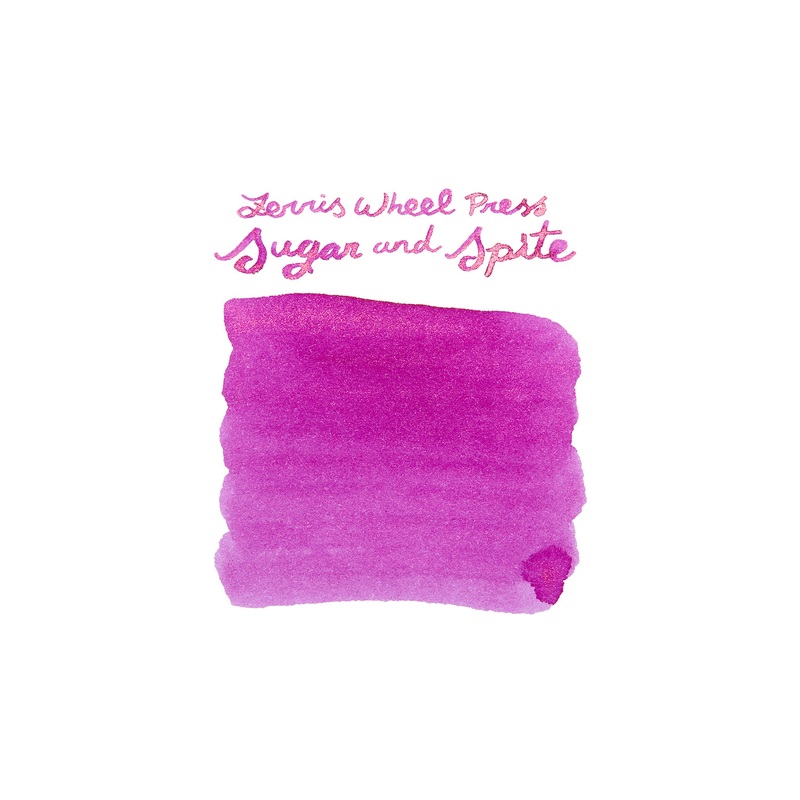 Ferris Wheel Press
Sugar and Spite